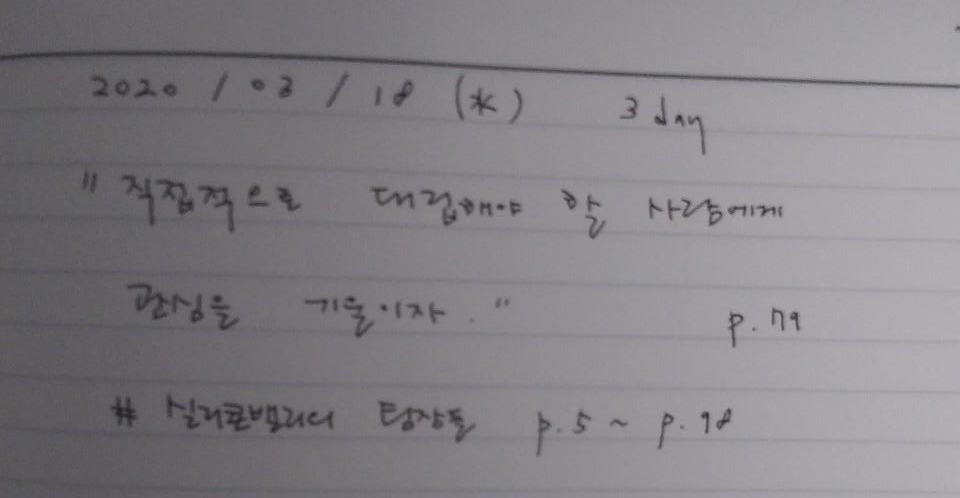 2020 / 03 / 18 (水) 3 day
"직접적으로 대립해야 할 사람에게
관심을 기울이자."
p. 79
# 실리콘밸리의 팀장들 p.5 ~ p.98